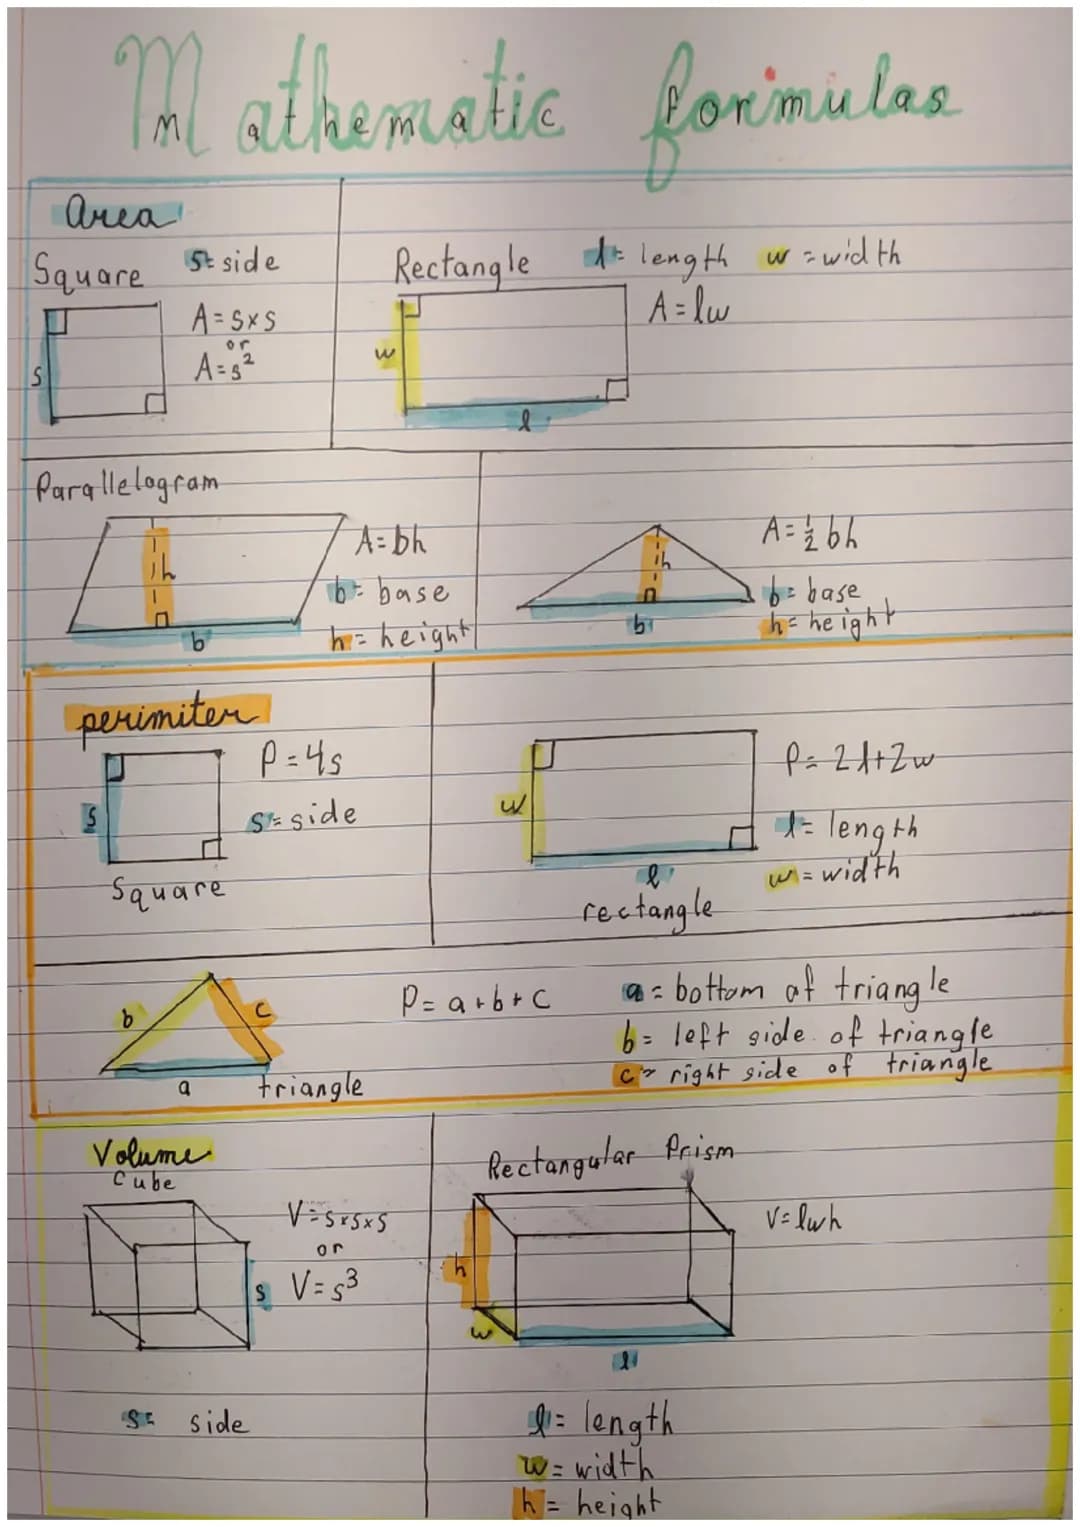 Mathematic formulas
Area
Square s= side
A = s×s
or
A = s²
s
Rectangle l = length w = width
A = lw
w
l
Parallelogram
A = bh
b = base
h = height
h
b
A = ½ bh
b = base
h = height
h
b
perimiter
P = 4s
s = side
s
Square
P = 2l+2w
l = length
w = width
w
l
rectangle
b
c
a
triangle
P = a+b+c
a = bottom of triangle
b = left side of triangle
c = right side of triangle
Volume
Cube
V = s×s×s
or
V = s³
s
s = side
Rectangular Prism
V = lwh
h
w
l
l = length
w = width
h = height